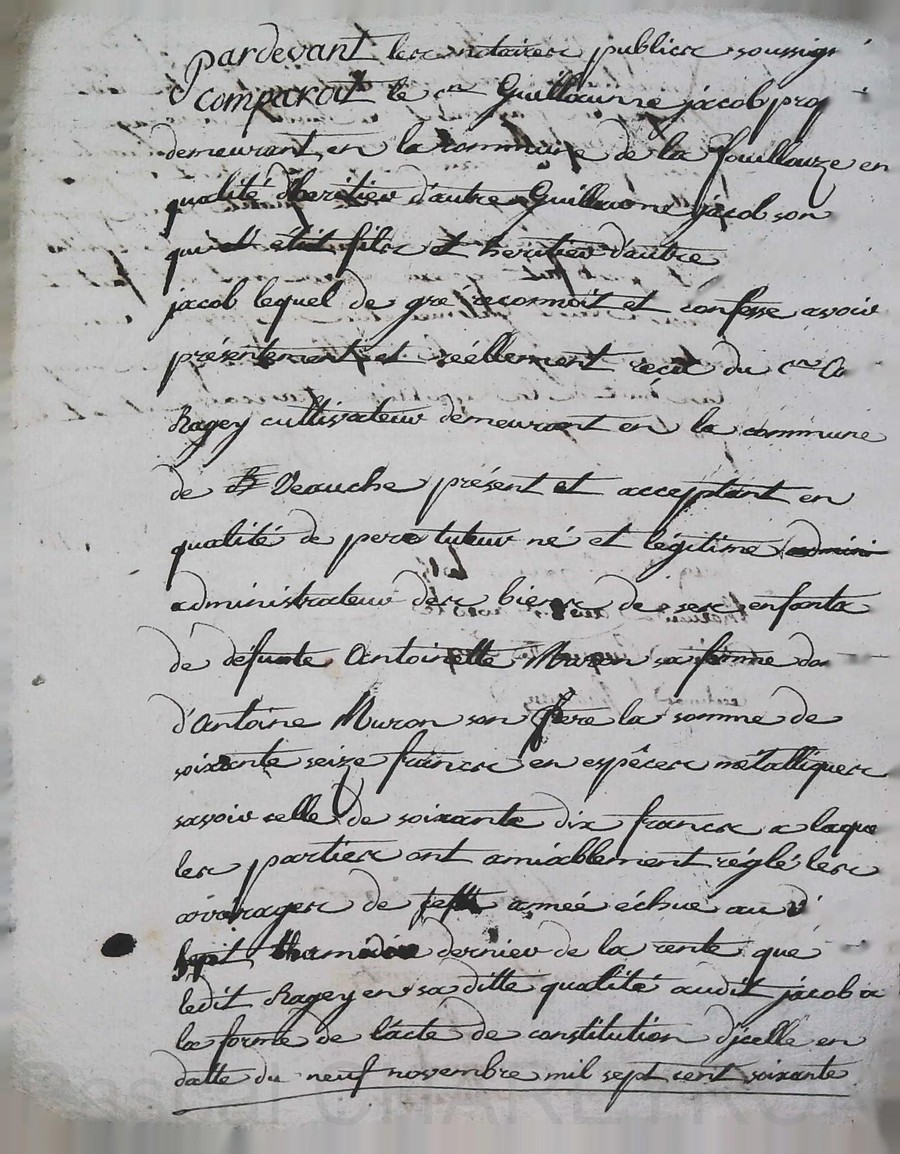 pardevant les notaires publics soussig
comparait le cen Guillaume jacob prop
demeurant en la commune de la fouillouze en
qualité d'heritier d'autre Guillaume jacob son
qui etait fils et heritier d'autre
jacob lequel de gre reconnoit et confesse avoir
présentement et réellement reçu du cen
Ragey cultivateur demeurant en la commune
de Veauche présent et acceptant en
qualité de pere tuteur né et légitime admini
administrateur des biens de ses enfants
de defunte Antoinette Muron sa femme
d'Antoine Muron son pere la somme de
soixante seize francs en espêces métalliques
savoir celle de soixante dix francs a laque
les parties ont amiablement réglé les
arrerages de sept année échue au
sept thermidor dernier de la rente que
ledit Ragey en sa ditte qualité audit jacob a
la forme de l'acte de constitution d'jcelle en
datte du neuf novembre mil sept cent soixante